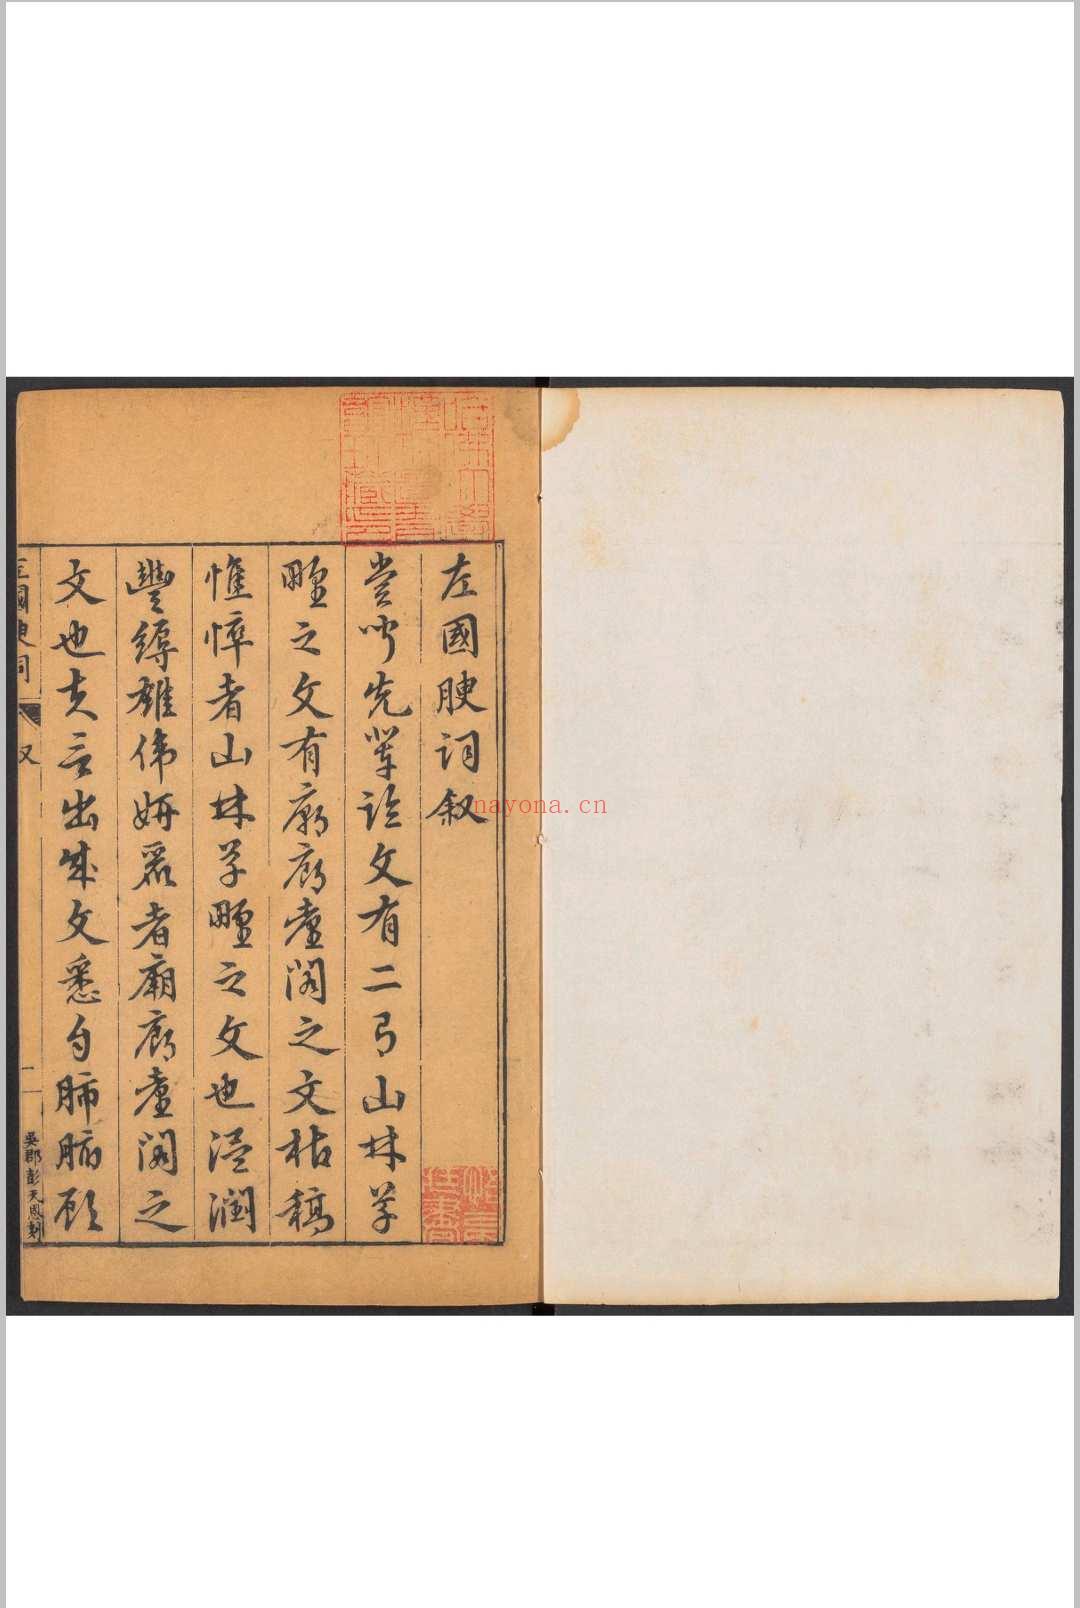 哈佛大學
漢和圖書
館珍藏印
左國腴詞叙
嘗聞先輩論文有二有山林草
野之文有廟廊臺閣之文枯槁
憔悴者山林草野之文也温潤
豐縟雄偉妍麗者廟廊臺閣之
文也夫言出成文悉自肺腑顧
左國腴詞
叙
一
吳郡彭天恩刻
nayona.cn